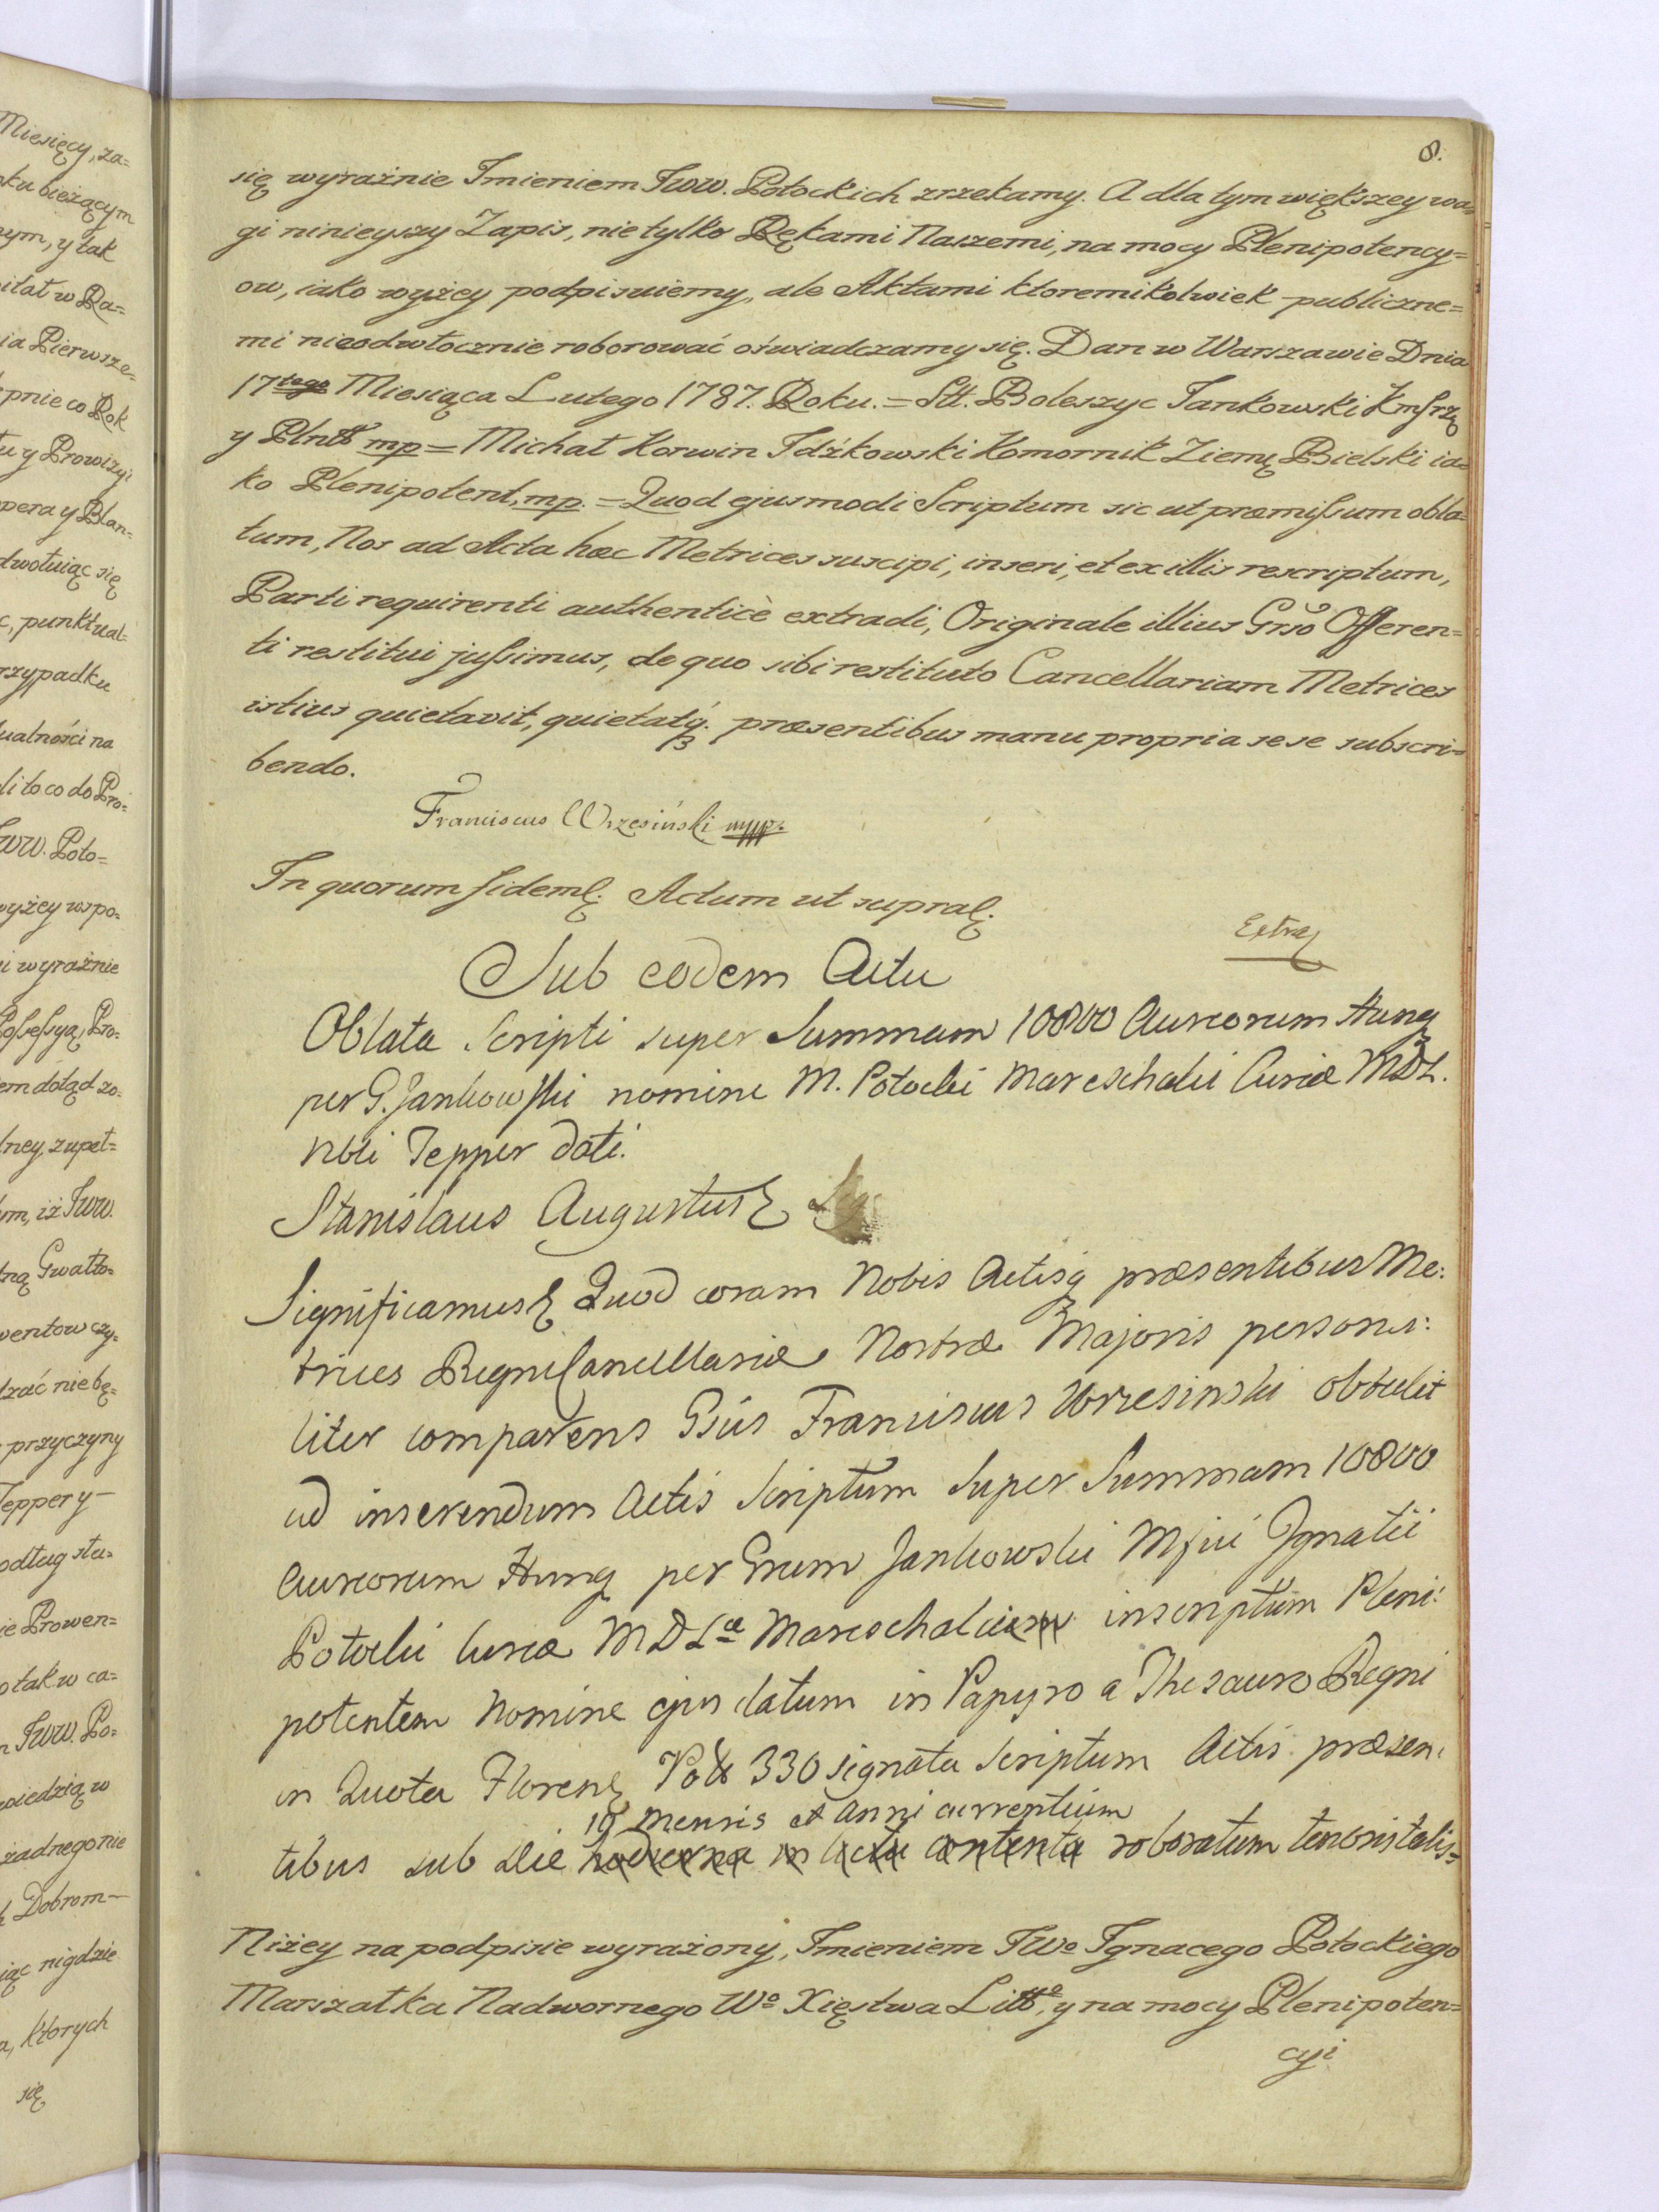 8.
się wyraźnie Imieniem JWW. Potockich zrzekamy. A dla tym większey wa=
gi ninieyszy Zapis, nie tylko Rękami Naszemi, na mocy Plenipotency=
ow, iako wyżey podpisuiemy, ale Aktami ktoremikolwiek publiczne=
mi nieodwłocznie roborować oświadczamy się. Dan w Warszawie Dnia
17tego Miesiąca Lutego 1787. Roku. = Boleszyc Jankowski
y Plntt mp = Michał Korwin Idźkowski Komornik Ziemę Bielski ia=
ko Plenipotent, mp. = Quod ejusmodi Scriptum sic ut præmissum obla=
tum, Nos ad Acta hæc Metrices suscipi, inseri, et ex illis rescriptum,
Parti requirenti authenticè extradi, Originale illius Grso Offeren=
ti restitui jussimus, de quo sibi restituto Cancellariam Metrices
istius quietavit, quietatq. præsentibus manu propria sese subscri=
bendo.
Franciscus Wrzesiński mpp.
In quorum fidem. Actum ut supra.
Extra
Sub eodem Actu
Oblata Scripti super Summam 10800 Aureorum Hung
per G. Jankowski nomine M. Potocki Mareschalci Curiæ MDL.
Nbli Tepper dati.
Stanislaus Augustus
Significamus Quod coram Nobis Actisq præsentibus Me:
trices Regni Cancellariæ Nostræ Majoris persona:
liter comparens Gsus Franciscus Wrzesinski obtulit
ad inserendum Actis Scriptum super Summam 10800
Aureorum Hung per Grsum Jankowski Mfici Ignatii
Potocki Curiæ MDLæ Mareschalci inscriptum Pleni:
potentem Nomine ejus datum in Papyro a Thesauro Regni
in Quota Floren Poll 330 signata Scriptum Actis præsen:
19 mensis et Anni currentium
tibus sub die hodierna in Actu contenta roboratum tenoris talis =
Niżey na podpisie wyrażony, Imieniem JWo Ignacego Potockiego
Marszałka Nadwornego Wo Xięstwa Litto, y na mocy Plenipoten=
cyi
Miesięcy, za=
ku bieżącym
ym, y tak
itał w Ra=
ia Pierwsze=
pnie co Rok
u y Prowizyi
pera y Blan=
dwołuiąc się
c, punktual=
rzypadku
ualności na
li to co do Pro=
WW. Poto=
wyżey wspo=
i wyraźnie
Possessyą, Pro=
em dotąd zo=
lney, zupeł=
ym, iż JWW.
ną Gwałto=
wentow czy=
dzać nie bę=
przyczyny
Tepper y —
odług stu=
ie Prowen=
o tak w ca=
JWW. Po=
wiedzią w
żadnego nie
Dobrom —
iąc nigdzie
a, ktorych
się